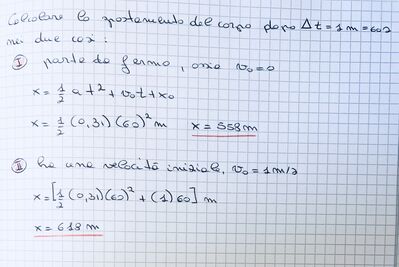 Calcolare lo spostamento del corpo dopo Δt = 1 m = 60s
nei due casi:
I parte da fermo, ossia v₀=0
x = 1/2 a t² + v₀t + x₀
x = 1/2 (0,31) (60)² m x = 558 m
II ha una velocità iniziale, v₀ = 1 m/s
x = [1/2 (0,31) (60)² + (1) 60] m
x = 618 m